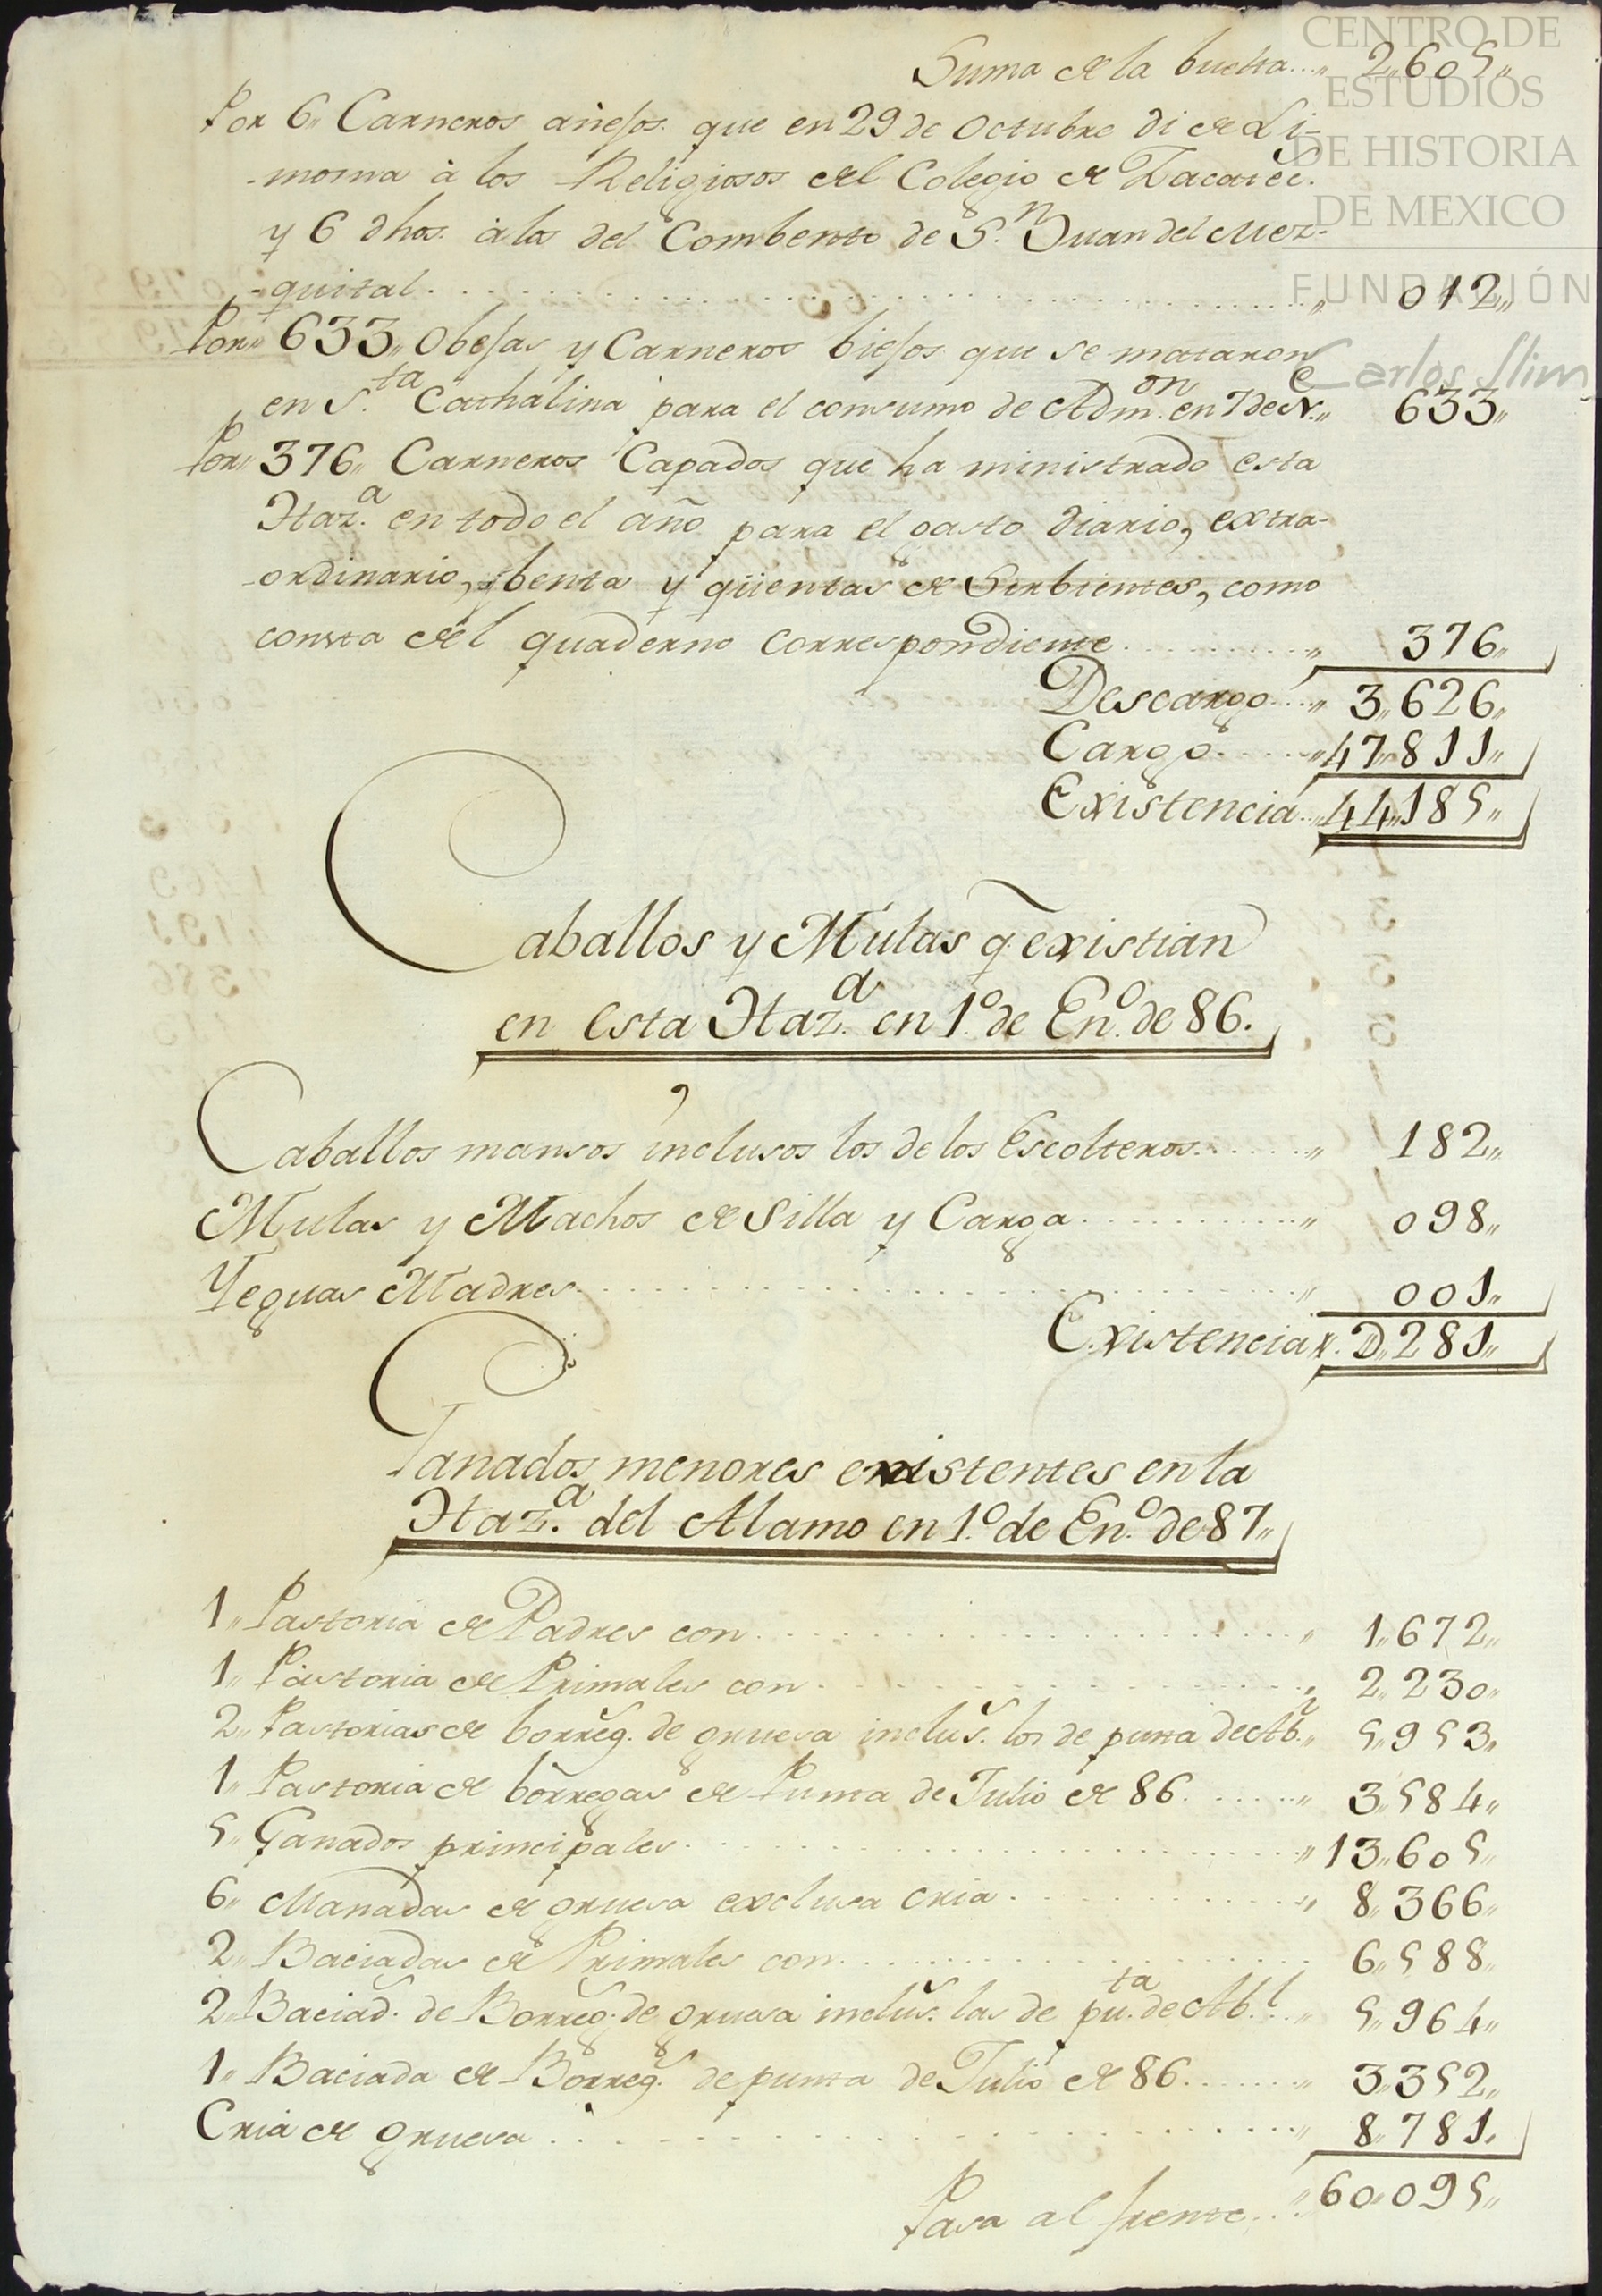 CENTRO DE
ESTUDIOS
DE HISTORIA
DE MEXICO
FUNDACIÓN
Carlos Slim
Suma de la buelta...,, 2,,605,,
Por 6,, Carneros añejos que en 29 de Octubre di de Li-
-mosna à los Religiosos del Colegio de Zacatec.
y 6 dhos. à los del Combento de S.n Juan del Mez-
-quital. . . . . . ,, 012,,
Por,, 633,, Obejas y Carneros biejos que se mataron
en S.ta Cathalina para el consumo de Adm.on en 7 de N.e,, 633,,
Por,, 376,, Carneros Capados que ha ministrado esta
Haz.a en todo el año para el gasto diario, extra-
-ordinario, y benta y qüentas de Serbientes, como
consta del quaderno correspondiente . . . . ,, 376,,
Descargo....,, 3,,626,,
Cargo......,, 47,,811,,
Existencia..,, 44,,185,,
Caballos y Mulas q existian
en esta Haz.a en 1.o de En.o de 86.
Caballos mansos inclusos los de los Escolteros......,, 182,,
Mulas y Machos de Silla y Carga..........,, 098,,
Yeguas Madres..........,, 001,,
Existencia,,. D,,281,,
Ganados menores existentes en la
Haz.a del Alamo en 1.o de En.o de 87,,
1,, Pastoria de Padres con..........,, 1,,672,,
1,, Pastoria de Primales con..........,, 2,,230,,
2,, Pastorias de borreg.s de gruesa inclus.s los de punta de Ab.l,, 5,,953,,
1,, Pastoria de borregas de Punta de Julio de 86......,, 3,,584,,
5,, Ganados principales..........,, 13,,605,,
6,, Manadas de gruesa exclusa cria..........,, 8,,366,,
2,, Baciadas de Primales con.......... 6,,588,,
2,, Baciad.s de Borreg.s de gruesa inclus.s las de pu.ta de Ab.l..,, 5,,964,,
1,, Baciada de Borreg.s de punta de Julio de 86......,, 3,,352,,
Cria de gruesa..........,, 8,,781,,
Pasa al frente...,, 60,,095,,